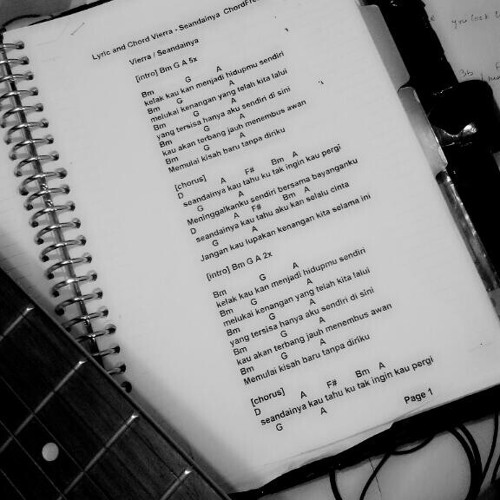 Lyric and Chord Vierra - Seandainya ChordFre
Vierra / Seandainya
[intro] Bm G A 5x
Bm G A
kelak kau kan menjadi hidupmu sendiri
Bm G A
melukai kenangan yang telah kita lalui
Bm G A
yang tersisa hanya aku sendiri di sini
Bm G A
kau akan terbang jauh menembus awan
Bm G A
Memulai kisah baru tanpa diriku
[chorus]
D A F# Bm A
seandainya kau tahu ku tak ingin kau pergi
G A
Meninggalkanku sendiri bersama bayanganku
D A F# Bm A
seandainya kau tahu aku kan selalu cinta
G A
Jangan kau lupakan kenangan kita selama ini
[intro] Bm G A 2x
Bm G A
kelak kau kan menjadi hidupmu sendiri
Bm G A
melukai kenangan yang telah kita lalui
Bm G A
yang tersisa hanya aku sendiri di sini
Bm G A
kau akan terbang jauh menembus awan
Bm G A
Memulai kisah baru tanpa diriku
[chorus]
D A F# Bm A
seandainya kau tahu ku tak ingin kau pergi
G A
Page 1